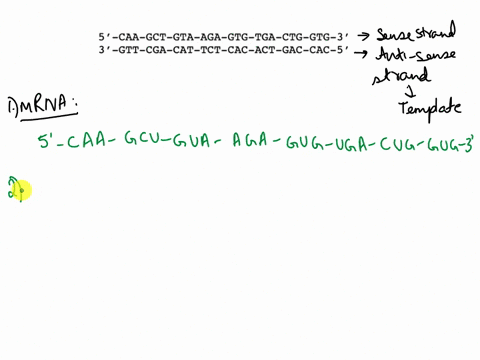 5'-CAA-GCT-GTA-AGA-GTG-TGA-CTG-GTG-3' → Sense strand
3'-GTT-CGA-CAT-TCT-CAC-ACT-GAC-CAC-5' → Anti-sense
strand
↓
Template
1) mRNA:
5'-CAA-GCU-GUA-AGA-GUG-UGA-CUG-GUG-3'
2)